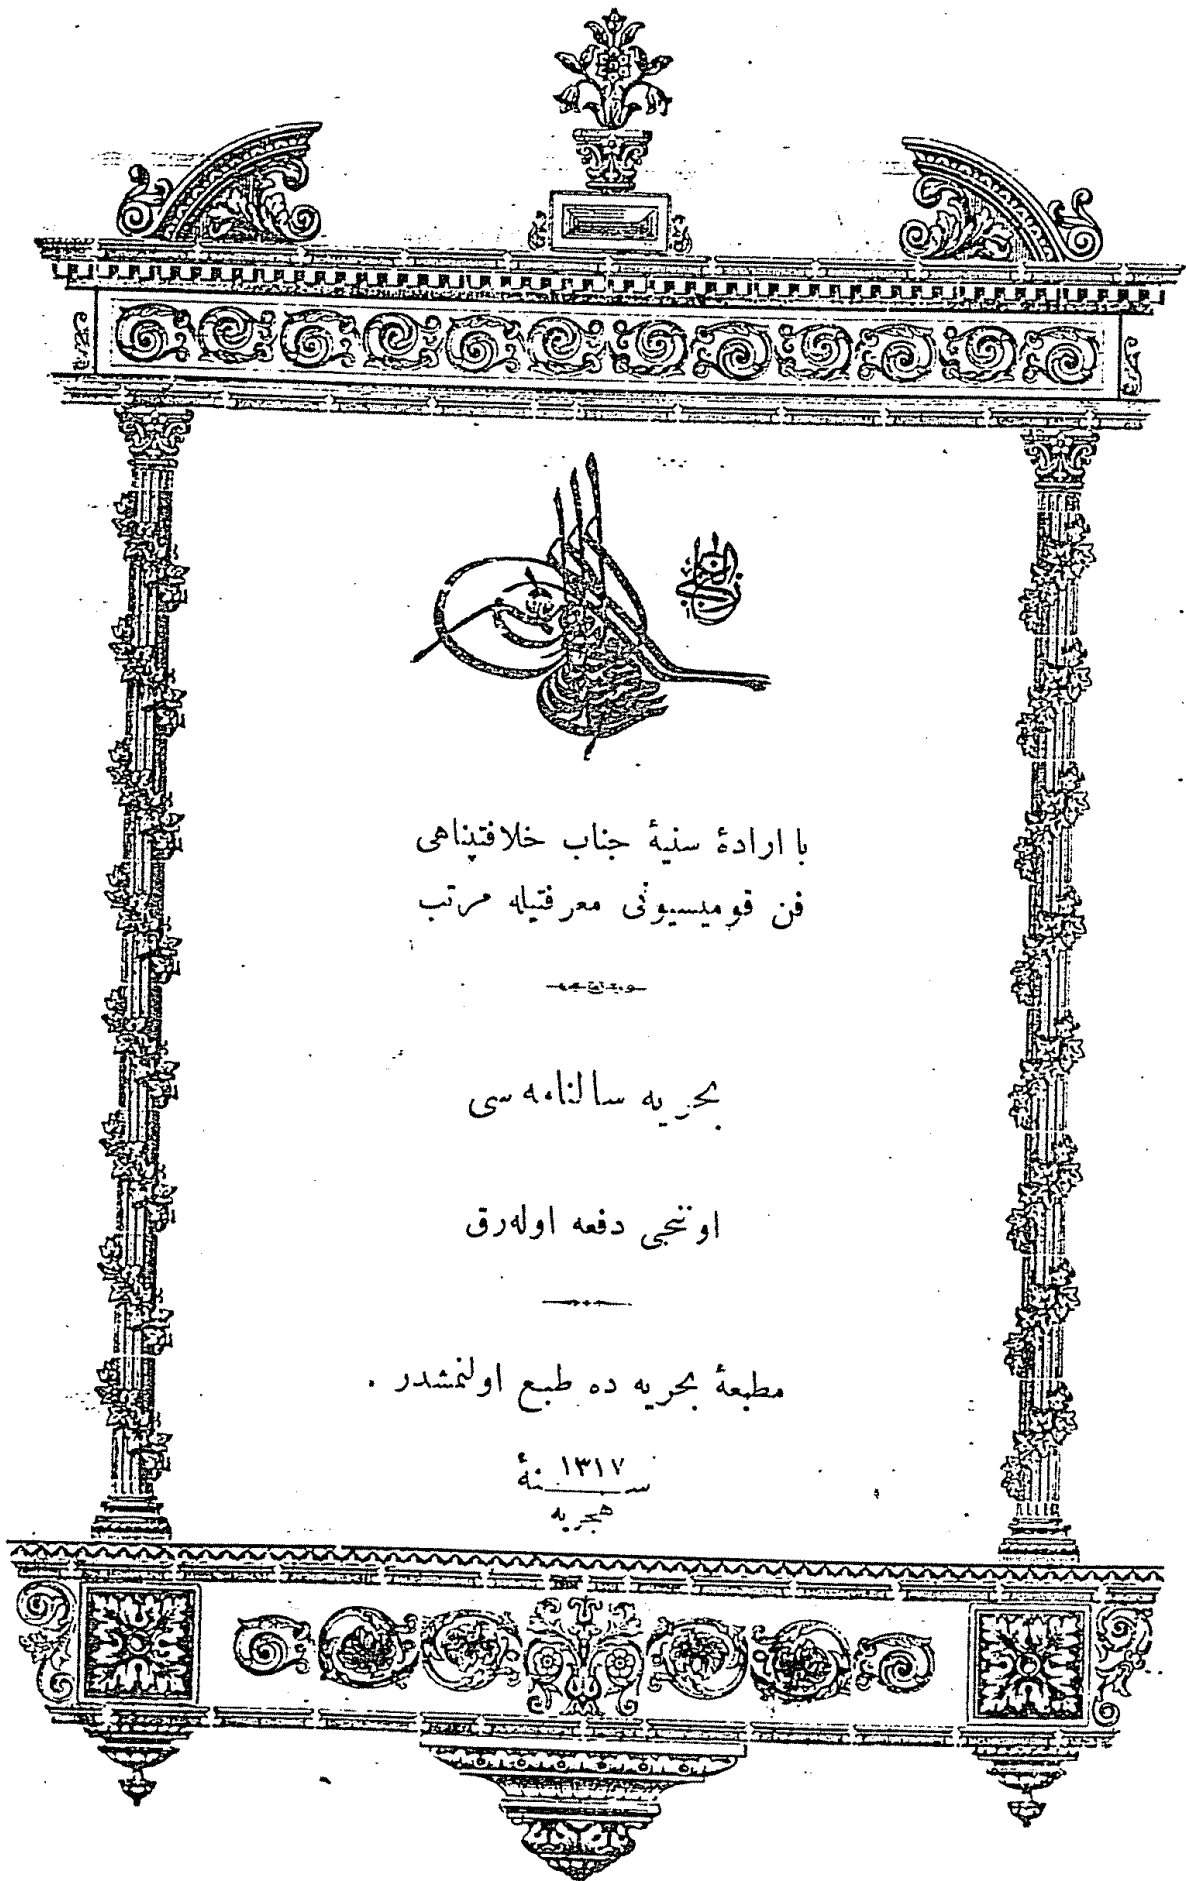 با ارادهٔ سنیهٔ جناب خلافتپناهی
فن قومیسیونی معرفتیله مرتب
بحریه سالنامه سی
اوننجی دفعه اوله‌رق
مطبعهٔ بحریه ده طبع اولنمشدر .
سنهٔ ١٣١٧
هجریه